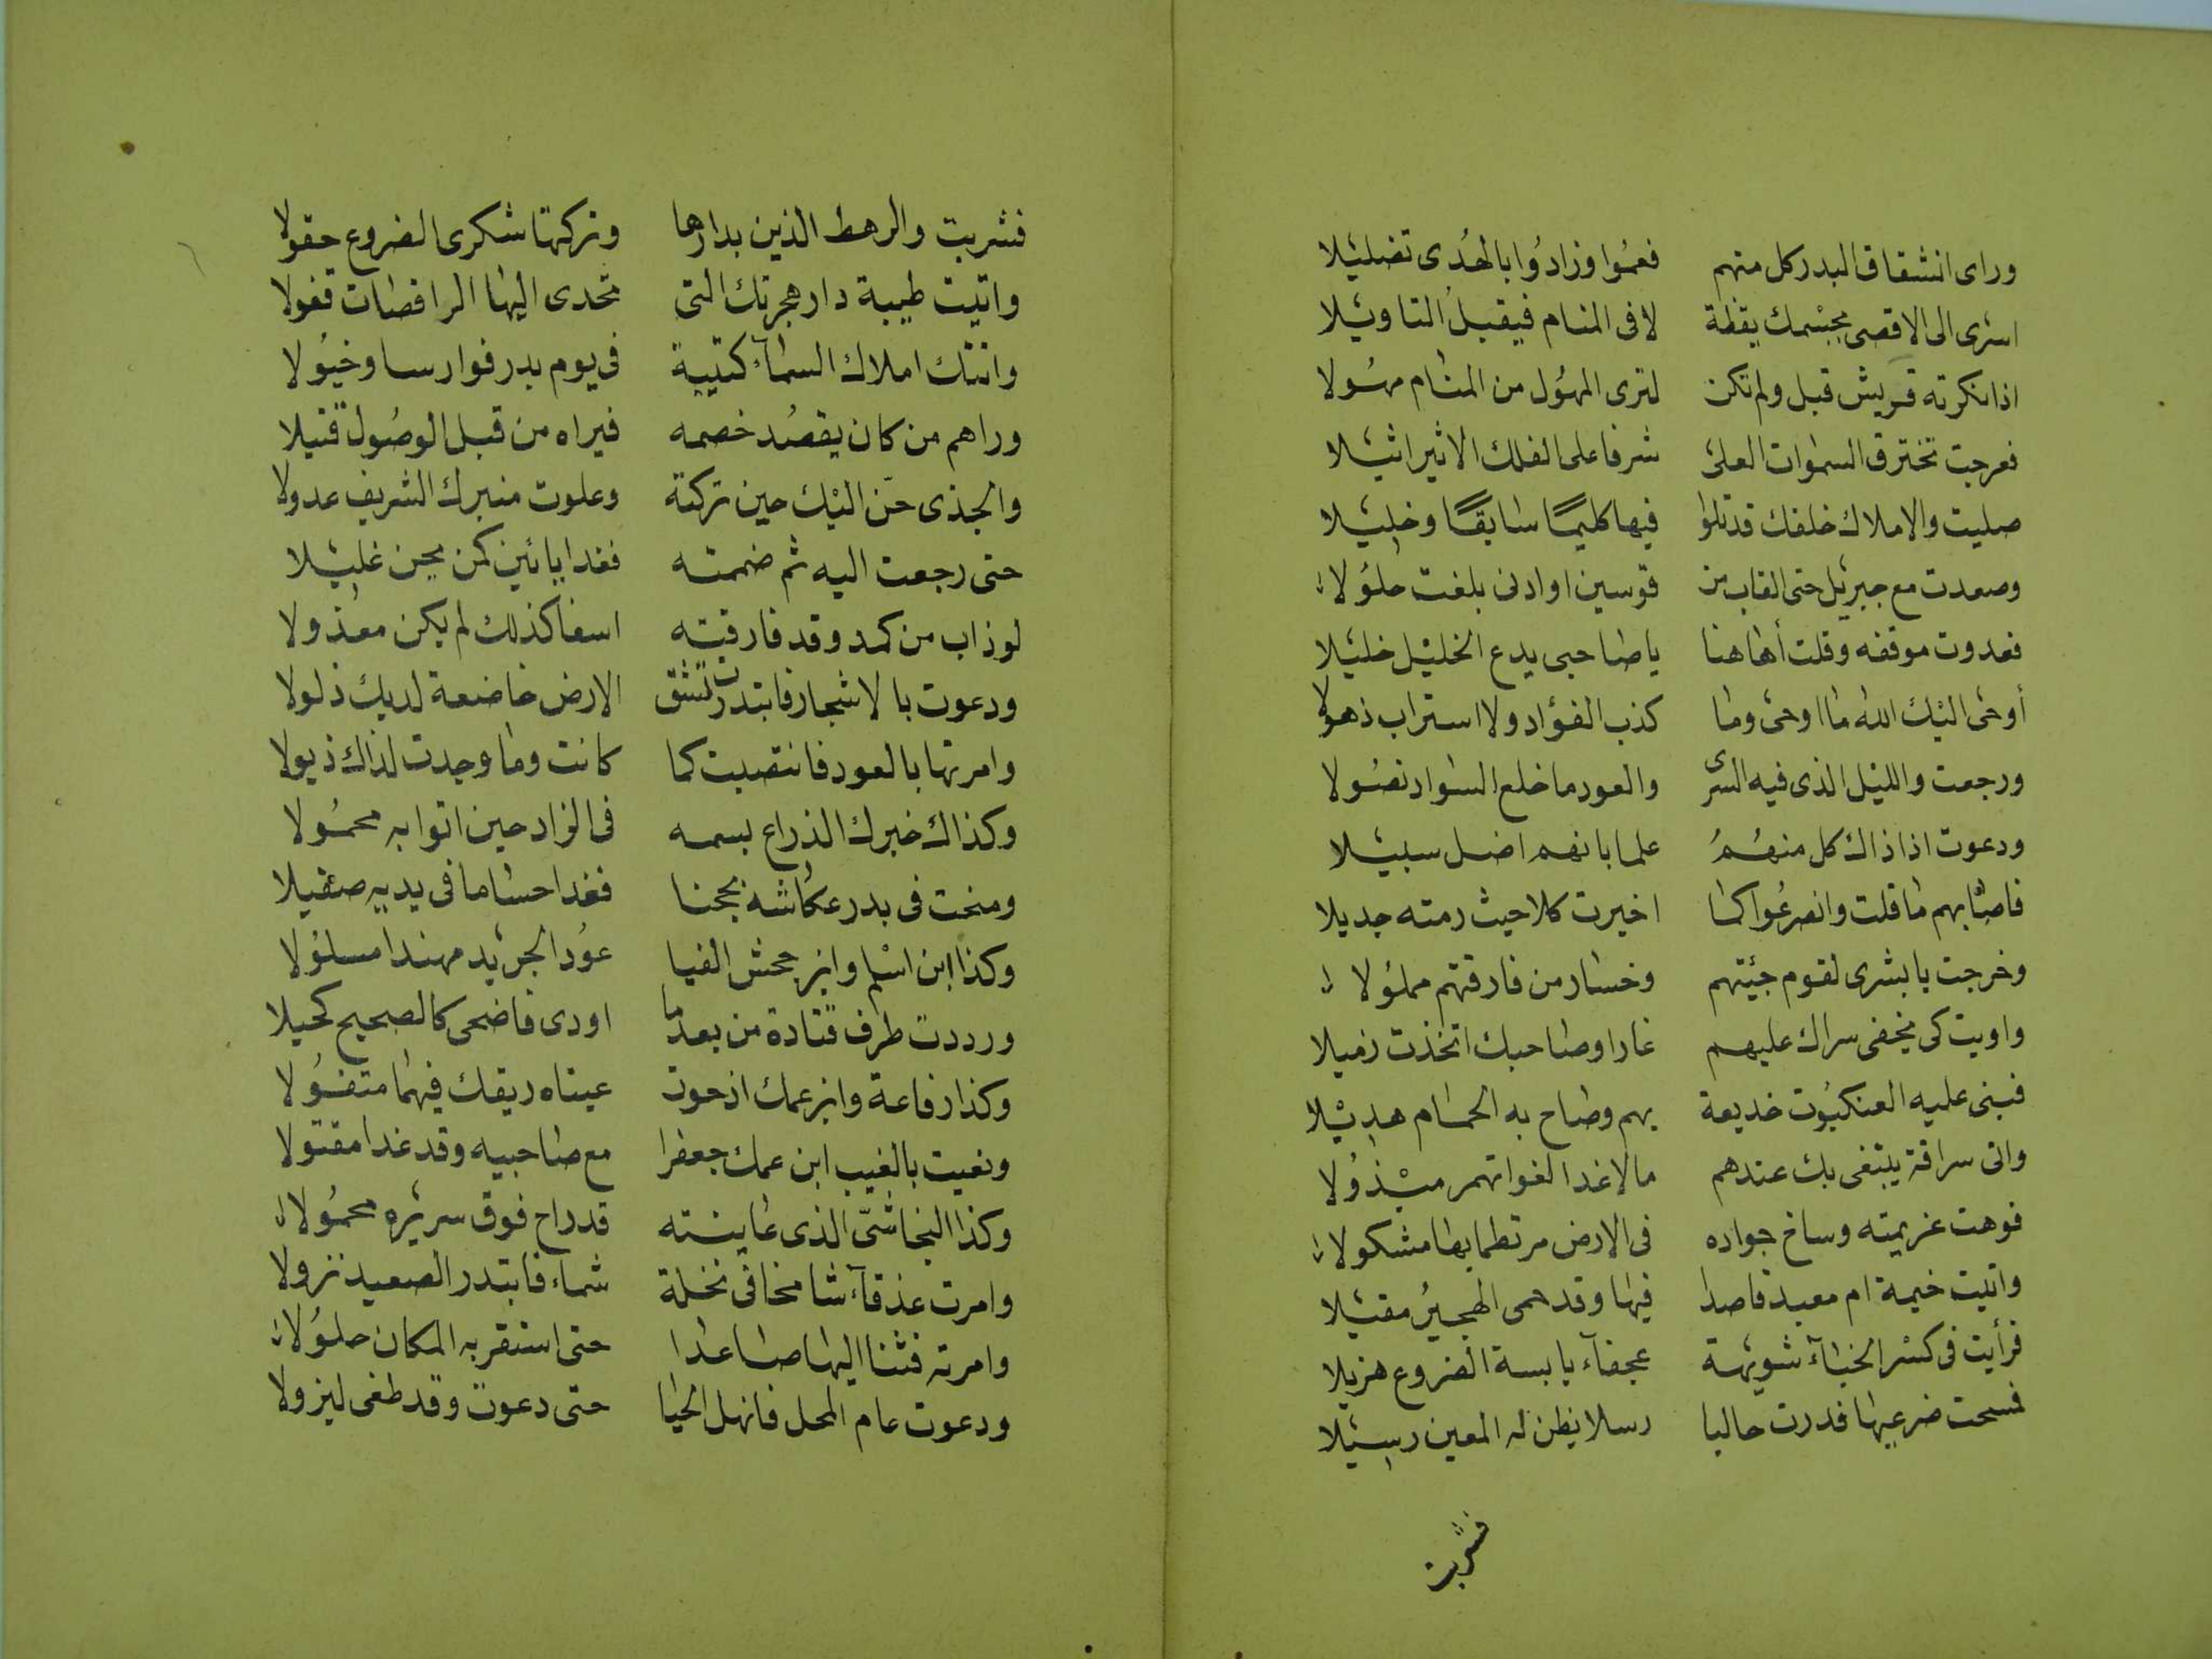 وراى انشقاق البدر كل منهم فعموا وزادوا بالهدى تضليلا
اسرى الى الاقصى بجسمك يقظة لا فى المنام فيقبل التاويلا
اذ انكرته قريش قبل ولم تكن لترى المهول من المنام مهولا
فعرجت تخترق السموات العلى شرفا على الفلك الاثير اثيلا
صليت والاملاك خلفك قد تلوا فيها كليما سابقا وخليلا
وصعدت مع جبريل حتى القاب من قوسين او ادنى بلغت حلولا
فعدوت موقفه وقلت أهاهنا يا صاحبى يدع الخليل خليلا
أوحى اليك الله ما اوحى وما كذب الفؤاد ولا استراب ذهولا
ورجعت والليل الذى فيه السرى والعود ما خلع السواد نصولا
ودعوت اذ اذاك كل منهم علما بانهم اضل سبيلا
فاصابهم ما قلت وانصرعوا كما اخبرت كلا حيث رمته جديلا
وخرجت يا بشرى لقوم جئتهم وخسار من فارقتهم مملولا
واويت كى يخفى سراك عليهم غارا وصاحبك اتخذت زميلا
فبنى عليه العنكبوت خديعة بهم وصاح به الحمام هديلا
واتى سراقة يبتغى بك عندهم مالا غدا لغواتهم مبذولا
فوهت عزيمته وساخ جواده فى الارض مرتطما بها مشكولا
واتيت خيمة ام معبد قاصدا فيها وقد حمى الهجير مقيلا
فرأيت فى كسر الخباء شويهة عجفاء يابسة الضروع هزيلا
فمسحت ضرعيها فدرت حالبا رسلا يظن له المعين رسيلا
فشربت
فشربت والرهط الذين بدارها وتركتها شكرى الضروع حقولا
واتيت طيبة دار هجرتك التى تحدى اليها الراقصات قفولا
واتتك املاك السماء كتيبة فى يوم بدر فوارسا وخيولا
وراهم من كان يقصد خصمه فيراه من قبل الوصول قتيلا
والجذى حن اليك حين تركته وعلوت منبرك الشريف عدولا
حتى رجعت اليه ثم ضممته فغدا يائين كمن يجن غليلا
لو ذاب من كمد وقد فارقته اسفا كذلك لم يكن معذولا
ودعوت بالاشجار فابتدرت تشق الارض خاضعة لديك ذلولا
وامرتها بالعود فانتصبت كما كانت وما وجدت لذاك ذبولا
وكذاك خبرك الذراع بسمه فى الزاد حين اتوا به محمولا
ومنحت فى بدر عكاشة محجنا فغدا حساما فى يديه صقيلا
وكذا ابن اسلم وابن جحش الفيا عود الجريد مهندا مسلولا
ورددت طرف قتادة من بعد ما اودى فاضحى كالصحيح كحيلا
وكذا رفاعة وابن عمك اذ حوت عيناه ريقك فيهما متفولا
ونعيت بالغيب ابن عمك جعفرا مع صاحبيه وقد غدا مقتولا
وكذا النجاشى الذى عاينته قد راح فوق سريره محمولا
وامرت عذقا شامخا فى نخلة شماء فابتدر الصعيد نزولا
وامرته فثنا اليها صاعدا حتى استقر به المكان حلولا
ودعوت عام المحل فانهل الحيا حتى دعوت وقد طغى ليزولا